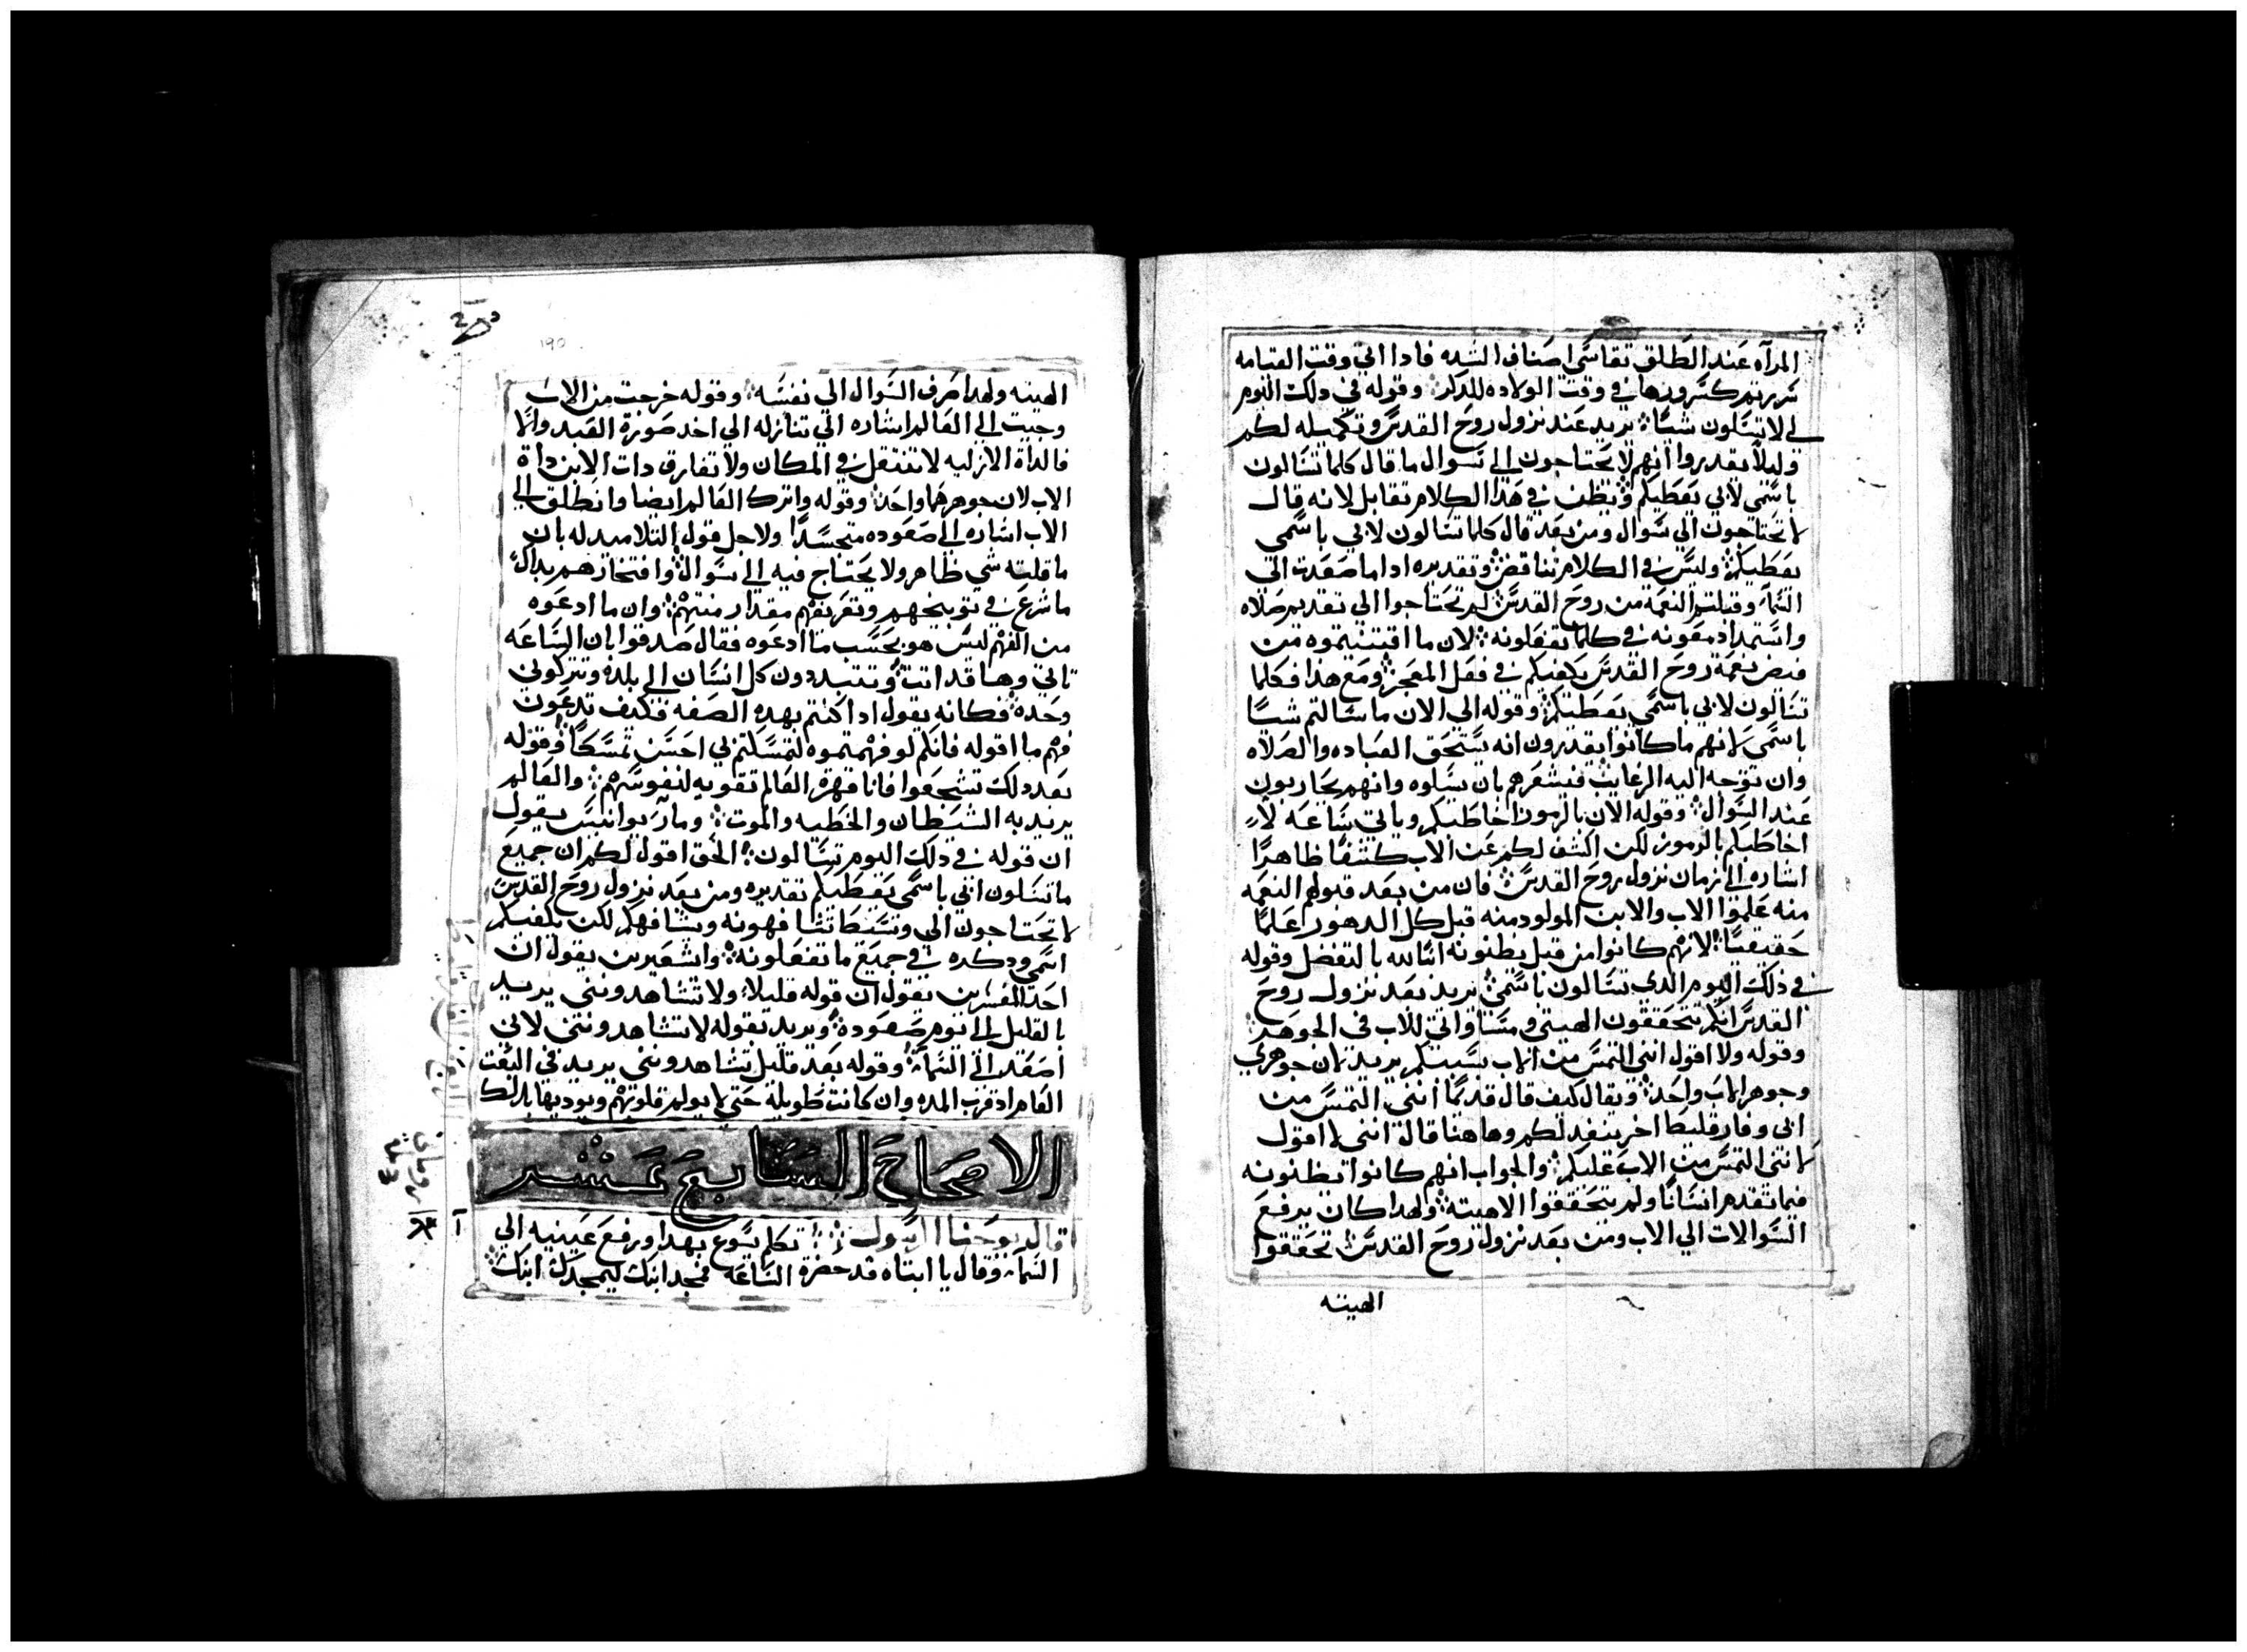 المرآه عند الطلق تقاسي اصناف الشده فادا اتى وقت القيامه
سررتم كسرورها في وقت الولاده للدكر وقوله في دلك اليوم
لي لا تسلون شيا يريد عند نزول روح القدس وتكميله لكم
وليلا يقدروا انهم لا يحتاجون الى سوال ما قال كلما تسالون
باسمي لابي يعطيكم ويظن في هدا الكلام تقابل لانه قال
لا تحتاجون الي سوال ومن بعد قال كلما تسالون لابي باسمي
يعطيكم وليس في الكلام تناقض وتقديره ادا ما صعدت الى
السما وقبلتم النعمة من روح القدس لم تحتاجوا الي تقديم صلاه
واستمداد معونه في كلما تفعلونه لان ما اقتنيتموه من
فيض نعمة روح القدس يكفيكم في فعل المعجز ومع هذا فكلما
تسالون لابي باسمي يعطيكم وقوله الى الان ما سالتم شيا
باسمي لانهم ما كانوا يقدرون انه يستحق العباده والصلاه
وان توجه اليه الرغايب فيشعرهم بان يسلوه وانهم يجاربون
عند السوال وقوله الان بالرموز اخاطبكم وياتي ساعه لا
اخاطبكم بالرموز لكن اكشف لكم عن الاب كشفا ظاهرا
اشاره الى زمان نزول روح القدس فان من بعد قبولهم النعمه
منه علموا الاب والابن المولود منه قبل كل الدهور علما
حقيقيا لانهم كانوا من قبل يظنونه ابنا لله بالتفضل وقوله
في ذلك اليوم الدى تسالون باسمي يريد بعد نزول روح
القدس انكم تتحققون الهيتي ومساواتي للاب في الجوهر
وقوله ولا اقول انني التمس من الاب بسببكم يريد لان جوهري
وجوهر الاب واحد ويقال كيف قال قديما انني التمس من
ابي وفارقليطا اخر ينفد لكم وهاهنا قال انني لا اقول
لانني التمس من الاب عليكم والجواب انهم كانوا تظنونه
فيما تقدم انسانا ولم يتحققوا الاهيته ولهدا كان يرفع
السوالات الي الاب ومن بعد نزول روح القدس تحققوا
الهيته
١٩٥
الهيته ولهدا صرف السوال الي نفسه وقوله خرجت من الاب
وجيت الى العالم اشاره الى تنازله الي اخد صورة العبد والا
فالداة الازليه لا تنتقل في المكان ولا تفارق دات الابن داة
الاب لان جوهرهما واحد وقوله واترك العالم ايضا وانطلق الي
الاب اشاره الى صعوده متجسدا ولاجل قول التلاميد له بان
ما قلته شي ظاهر ولا يحتاج فيه الى سوال وافتخارهم بدلك
ما شرع في توبيخهم وتعريفهم مقدار منتهم وان ما ادعوه
من الفهم ليس هو بحسب ما ادعوه فقال صدقوا بان الساعه
تاتي وها قد اتت وتتبددون كل انسان الى بلده وتتركوني
وحده فكانه يقول ادا كنتم بهده الصفه فكيف تدعون
فهم ما اقوله فانكم لو فهمتموه لتمسكتم بي احسن تمسكا وقوله
بعد دلك تشجعوا فانا قهرة العالم تقويه لنفوسهم والعالم
يريد به الشيطان والخطيه والموت ومار يوانيس يقول
ان قوله في دلك اليوم تسالون الحق اقول لكم ان جميع
ما تسلون ابي باسمي يعطيكم تقديره ومن بعد نزول روح القدس
لا تحتاجون الي وسيطا تشافهونه ويشافهكم لكن يكفيكم
اسمي ودكره في جميع ما تفعلونه واشعيرين يقول ان
احد المفسرين يقول ان قوله قليلا ولا تشاهدونني يريد
بالقليل الى يوم صعوده ويريد بقوله لا تشاهدونني لاني
اصعد الى السما وقوله بعد قليل تشاهدونني يريد في البعث
العام اد قرب المده وان كانت طويله حتي لا يولم قلوبهم ويوديها بدلك
الاصحاح السابع عشر
قال يوحنا الرسول تكلم يسوع بهدا ورفع عينيه الى
السما وقال يا ابتاه قد حضرة الساعه فمجد ابنك ليمجدك ابنك